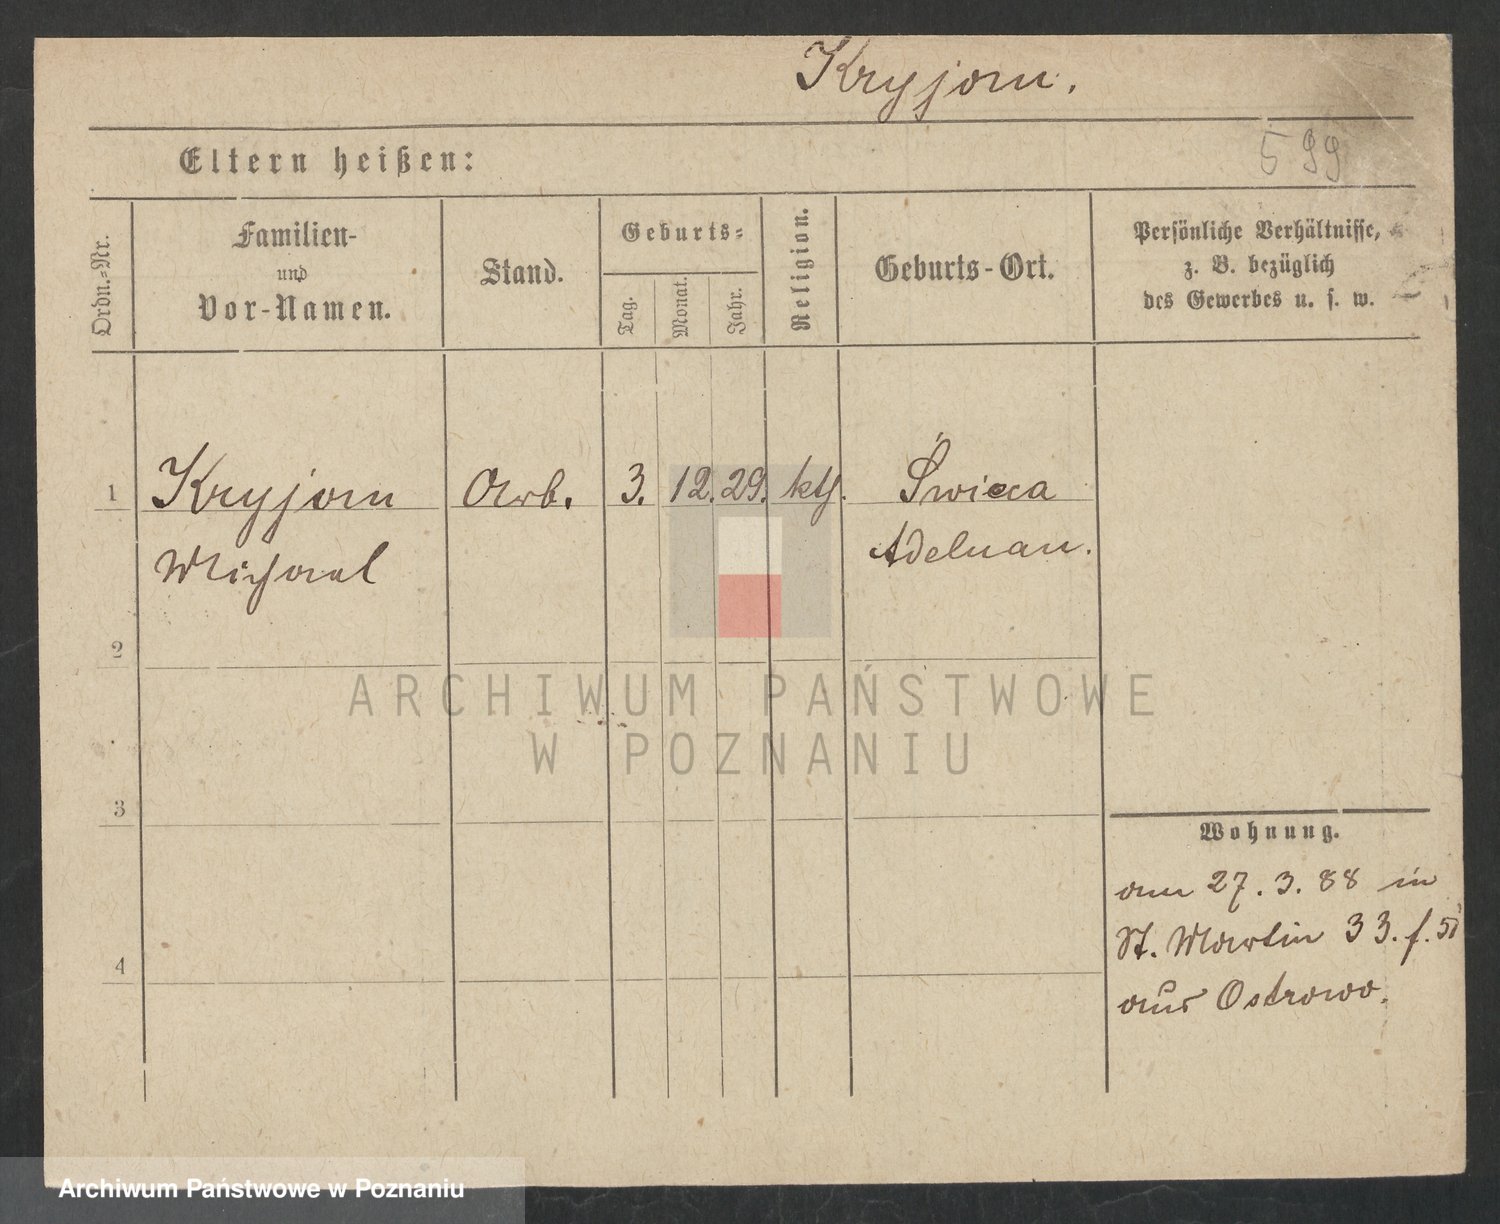 Kryjom.
599
Eltern heißen:
Ordn.-Nr.
Familien-
und
Vor-Namen.
Stand.
Geburts-
Tag.
Monat.
Jahr.
Religion.
Geburts-Ort.
Persönliche Verhältnisse,
z. B. bezüglich
des Gewerbes u. s. w.
1 Kryjom Arb. 3. 12. 29. kth. Świeca
Michael Adelnau.
2
3
4
ARCHIWUM PAŃSTWOWE
W POZNANIU
Wohnung.
am 27. 3. 88 in
St. Martin 33. f.
aus Ostrowo.
Archiwum Państwowe w Poznaniu